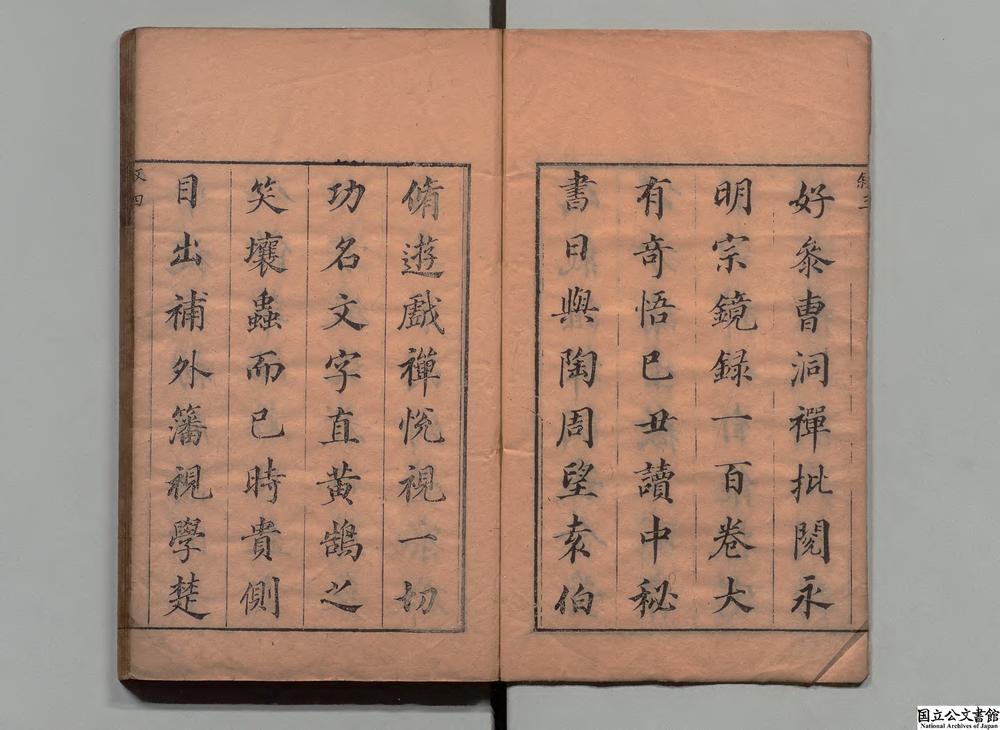 好叅曹洞禪批閱永
明宗鏡録一百卷大
有奇悟已丑讀中秘
書日與陶周望袁伯
脩遊戲禪悅視一切
功名文字直黄鵠之
笑壤蟲而已時貴側
目出補外籓視學楚
国立公文書館
National Archives of Japan